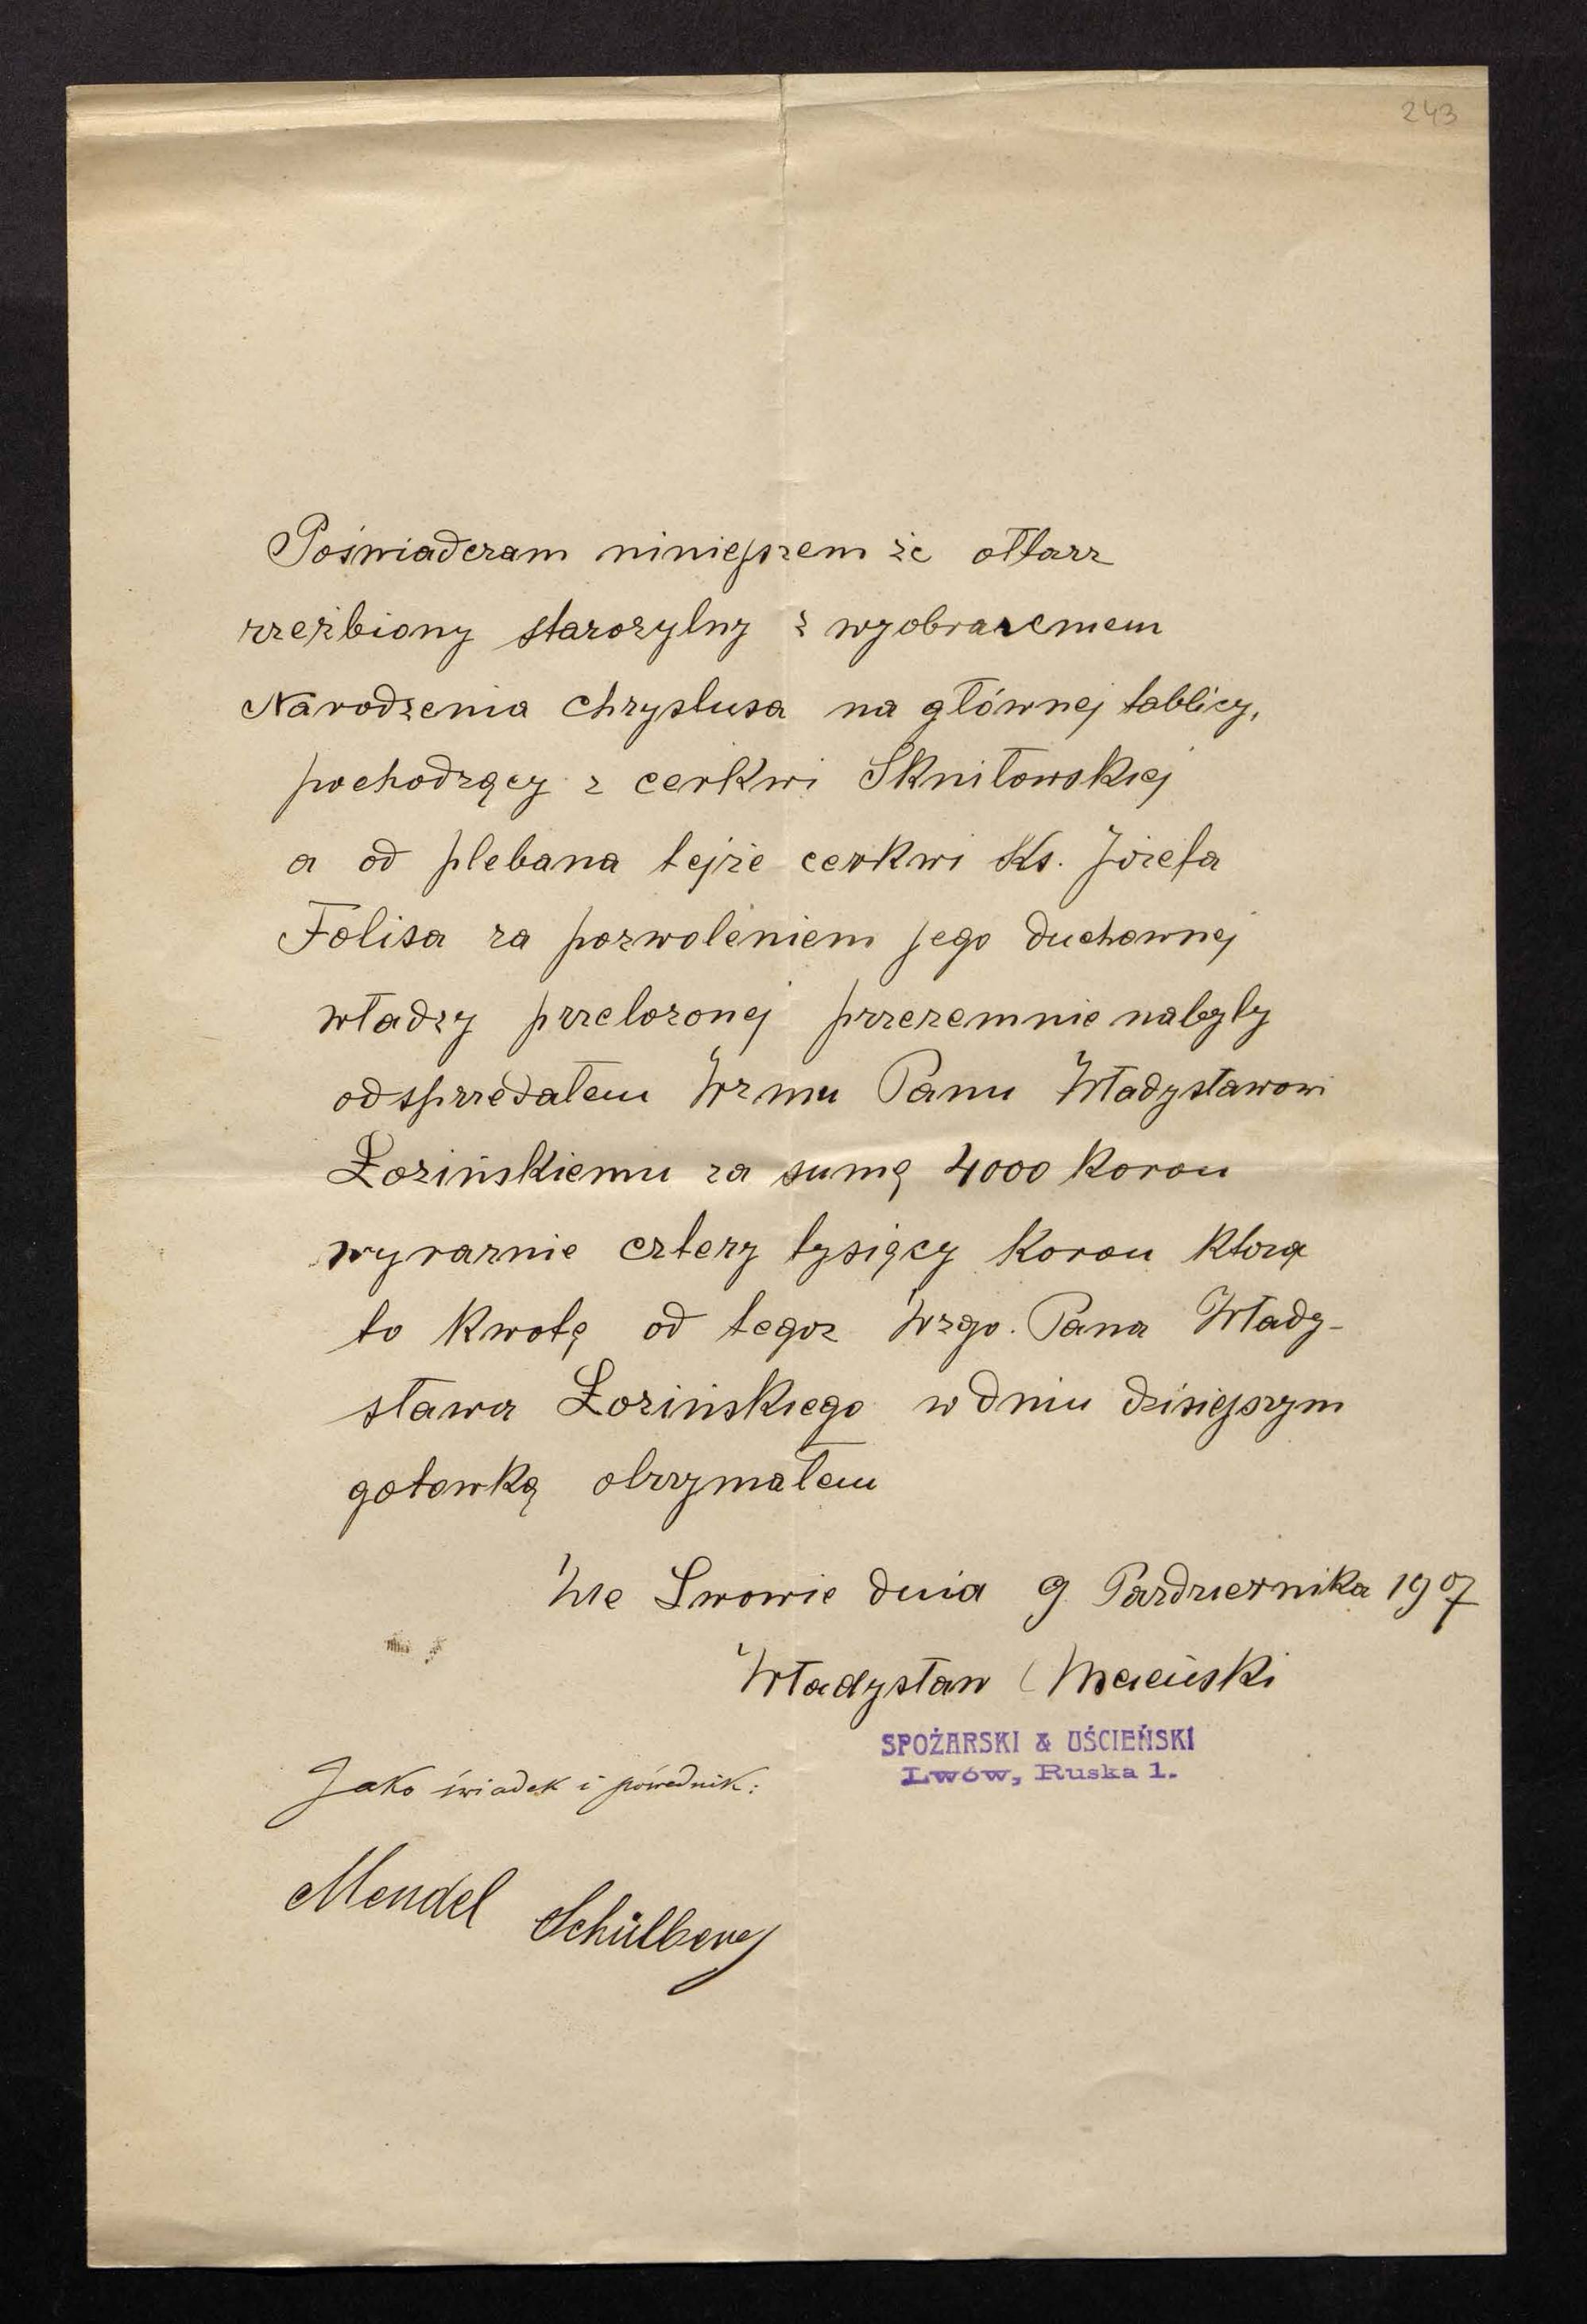 243
Poświadczam niniejszem że ołtarz
rzeźbiony starożytny z wyobrażeniem
Narodzenia Chrystusa na głównej tablicy,
pochodzący z cerkwi Skniłowskiej
a od plebana tejże cerkwi Ks. Józefa
Folisa za pozwoleniem jego duchownej
władzy przełożonej przezemnie nabyty
odsprzedałem Wzmu Panu Władysławowi
Łozińskiemu za sumę 4000 Koron
wyraznie cztery tysięcy Koron którą
to Kwotę od tegoz Wzgo. Pana Włady-
sława Łozińskiego w dniu dzisiejszym
gotowką otrzymałem
We Lwowie dnia 9 Pazdziernika 1907
Władysław
SPOŻARSKI & UŚCIEŃSKI
Lwów, Ruska 1.
Jako świadek i pośrednik:
Mendel Schülberg